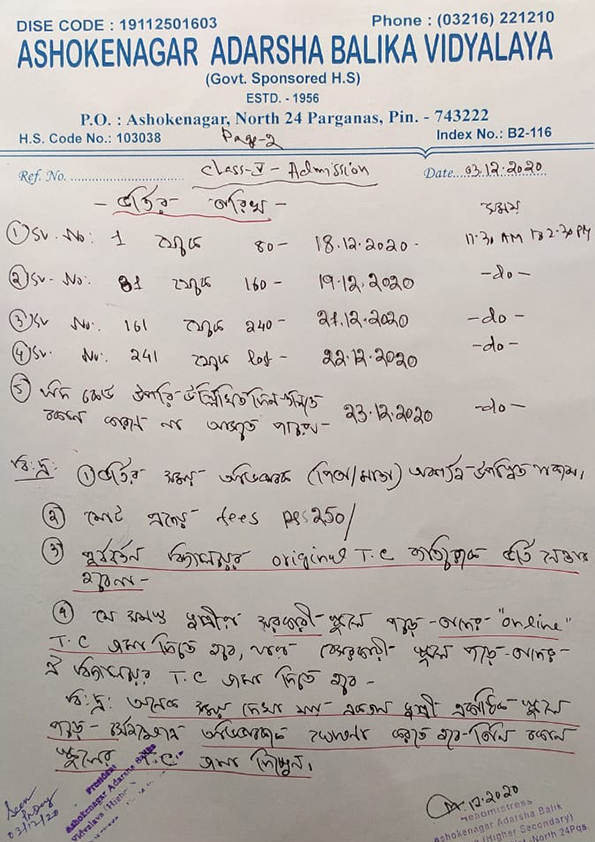 DISE CODE : 19112501603 Phone : (03216) 221210
ASHOKENAGAR ADARSHA BALIKA VIDYALAYA
(Govt. Sponsored H.S)
ESTD. - 1956
P.O. : Ashokenagar, North 24 Parganas, Pin. - 743222
H.S. Code No.: 103038 Page-2 Index No.: B2-116
Ref. No. Class-V- Admission Date 03.12.2020
- ভর্তির- তারিখ - সময়
① SL. No: 1 থেকে 80 - 18.12.2020- 11.30 AM to 2.30 PM
② SL- No: 81 থেকে 160 - 19.12.2020 -do-
③ SL No:. 161 থেকে 240 - 21.12.2020 -do-
④ SL. No: 241 থেকে last - 22.12.2020 -do-
⑤ যদি কেউ উপরি-উল্লিখিত দিনগুলিতে
কোন কারণে না আসতে পারে- 23.12.2020 -do-
বি: দ্র: ① ভর্তির সময়- অভিভাবক (পিতা/মাতা) অবশ্যই-উপস্থিত থাকবে।
② মোট fees Rs 250/
③ পূর্ববর্তী বিদ্যালয়ের original T.C ব্যতিরেকে ভর্তি নেওয়া
হবেনা-
৪ যে সমস্ত ছাত্রীরা সরকারী- স্কুলে পড়ে -তাদের- "online"
T.C জমা দিতে হবে, বেসরকারী- স্কুলে পড়ে-তাদের-
ঐ বিদ্যালয়ের T.C জমা দিতে হবে-
বি: দ্র: অনেক সময় দেখা যায়- একজন ছাত্রী একাধিক স্কুলে
পড়ে- অভিভাবককে ঘোষণা করতে হবে-তিনি কোন
স্কুলের T.C জমা দিচ্ছেন।
Seen
03/12/20
President
Ashokenagar Adarsha Balika
Vidyalaya (Higher
.12.2020
Headmistress
Ashokenagar Adarsha Balik
(Higher Secondary)
North 24 Pgs